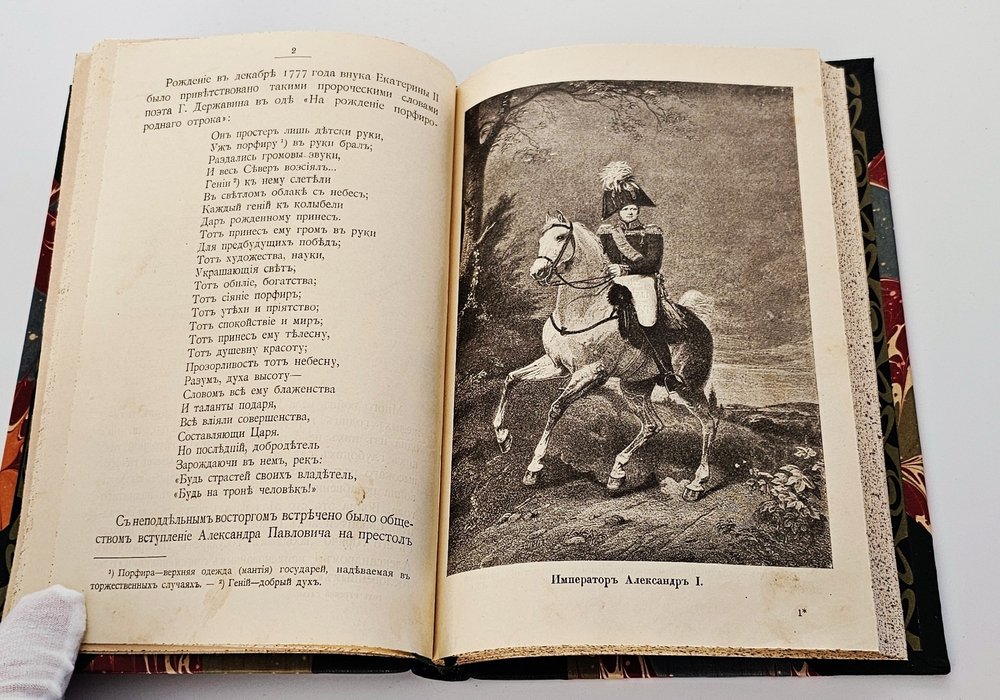 2
Рожденіе въ декабрѣ 1777 года внука Екатерины II
было привѣтствовано такими пророческими словами
поэта Г. Державина въ одѣ «На рожденіе порфиро-
роднаго отрока»:
Онъ простеръ лишь дѣтски руки,
Ужъ порфиру ¹) въ руки бралъ;
Раздались громовы звуки,
И весь Сѣверъ возсіялъ...
Геніи ²) къ нему слетѣли
Въ свѣтломъ облакѣ съ небесъ;
Каждый геній къ колыбели
Даръ рожденному принесъ.
Тотъ принесъ ему громъ въ руки
Для предбудущихъ побѣдъ;
Тотъ художества, науки,
Украшающія свѣтъ;
Тотъ обиліе, богатства;
Тотъ сіяніе порфиръ;
Тотъ утѣхи и пріятство;
Тотъ спокойствіе и миръ;
Тотъ принесъ ему тѣлесну,
Тотъ душевну красоту;
Прозорливость тотъ небесну,
Разумъ, духа высоту—
Словомъ всѣ ему блаженства
И таланты подаря,
Всѣ вліяли совершенства,
Составляющи Царя.
Но послѣдній, добродѣтель
Зарождаючи въ немъ, рекъ:
«Будь страстей своихъ владѣтель,
«Будь на тронѣ человѣкъ!»
Съ неподдѣльнымъ восторгомъ встрѣчено было обще-
ствомъ вступленіе Александра Павловича на престолъ
¹) Порфира—верхняя одежда (мантія) государей, надѣваемая въ
торжественныхъ случаяхъ. — ²) Геній—добрый духъ.
Императоръ Александръ I.
1*